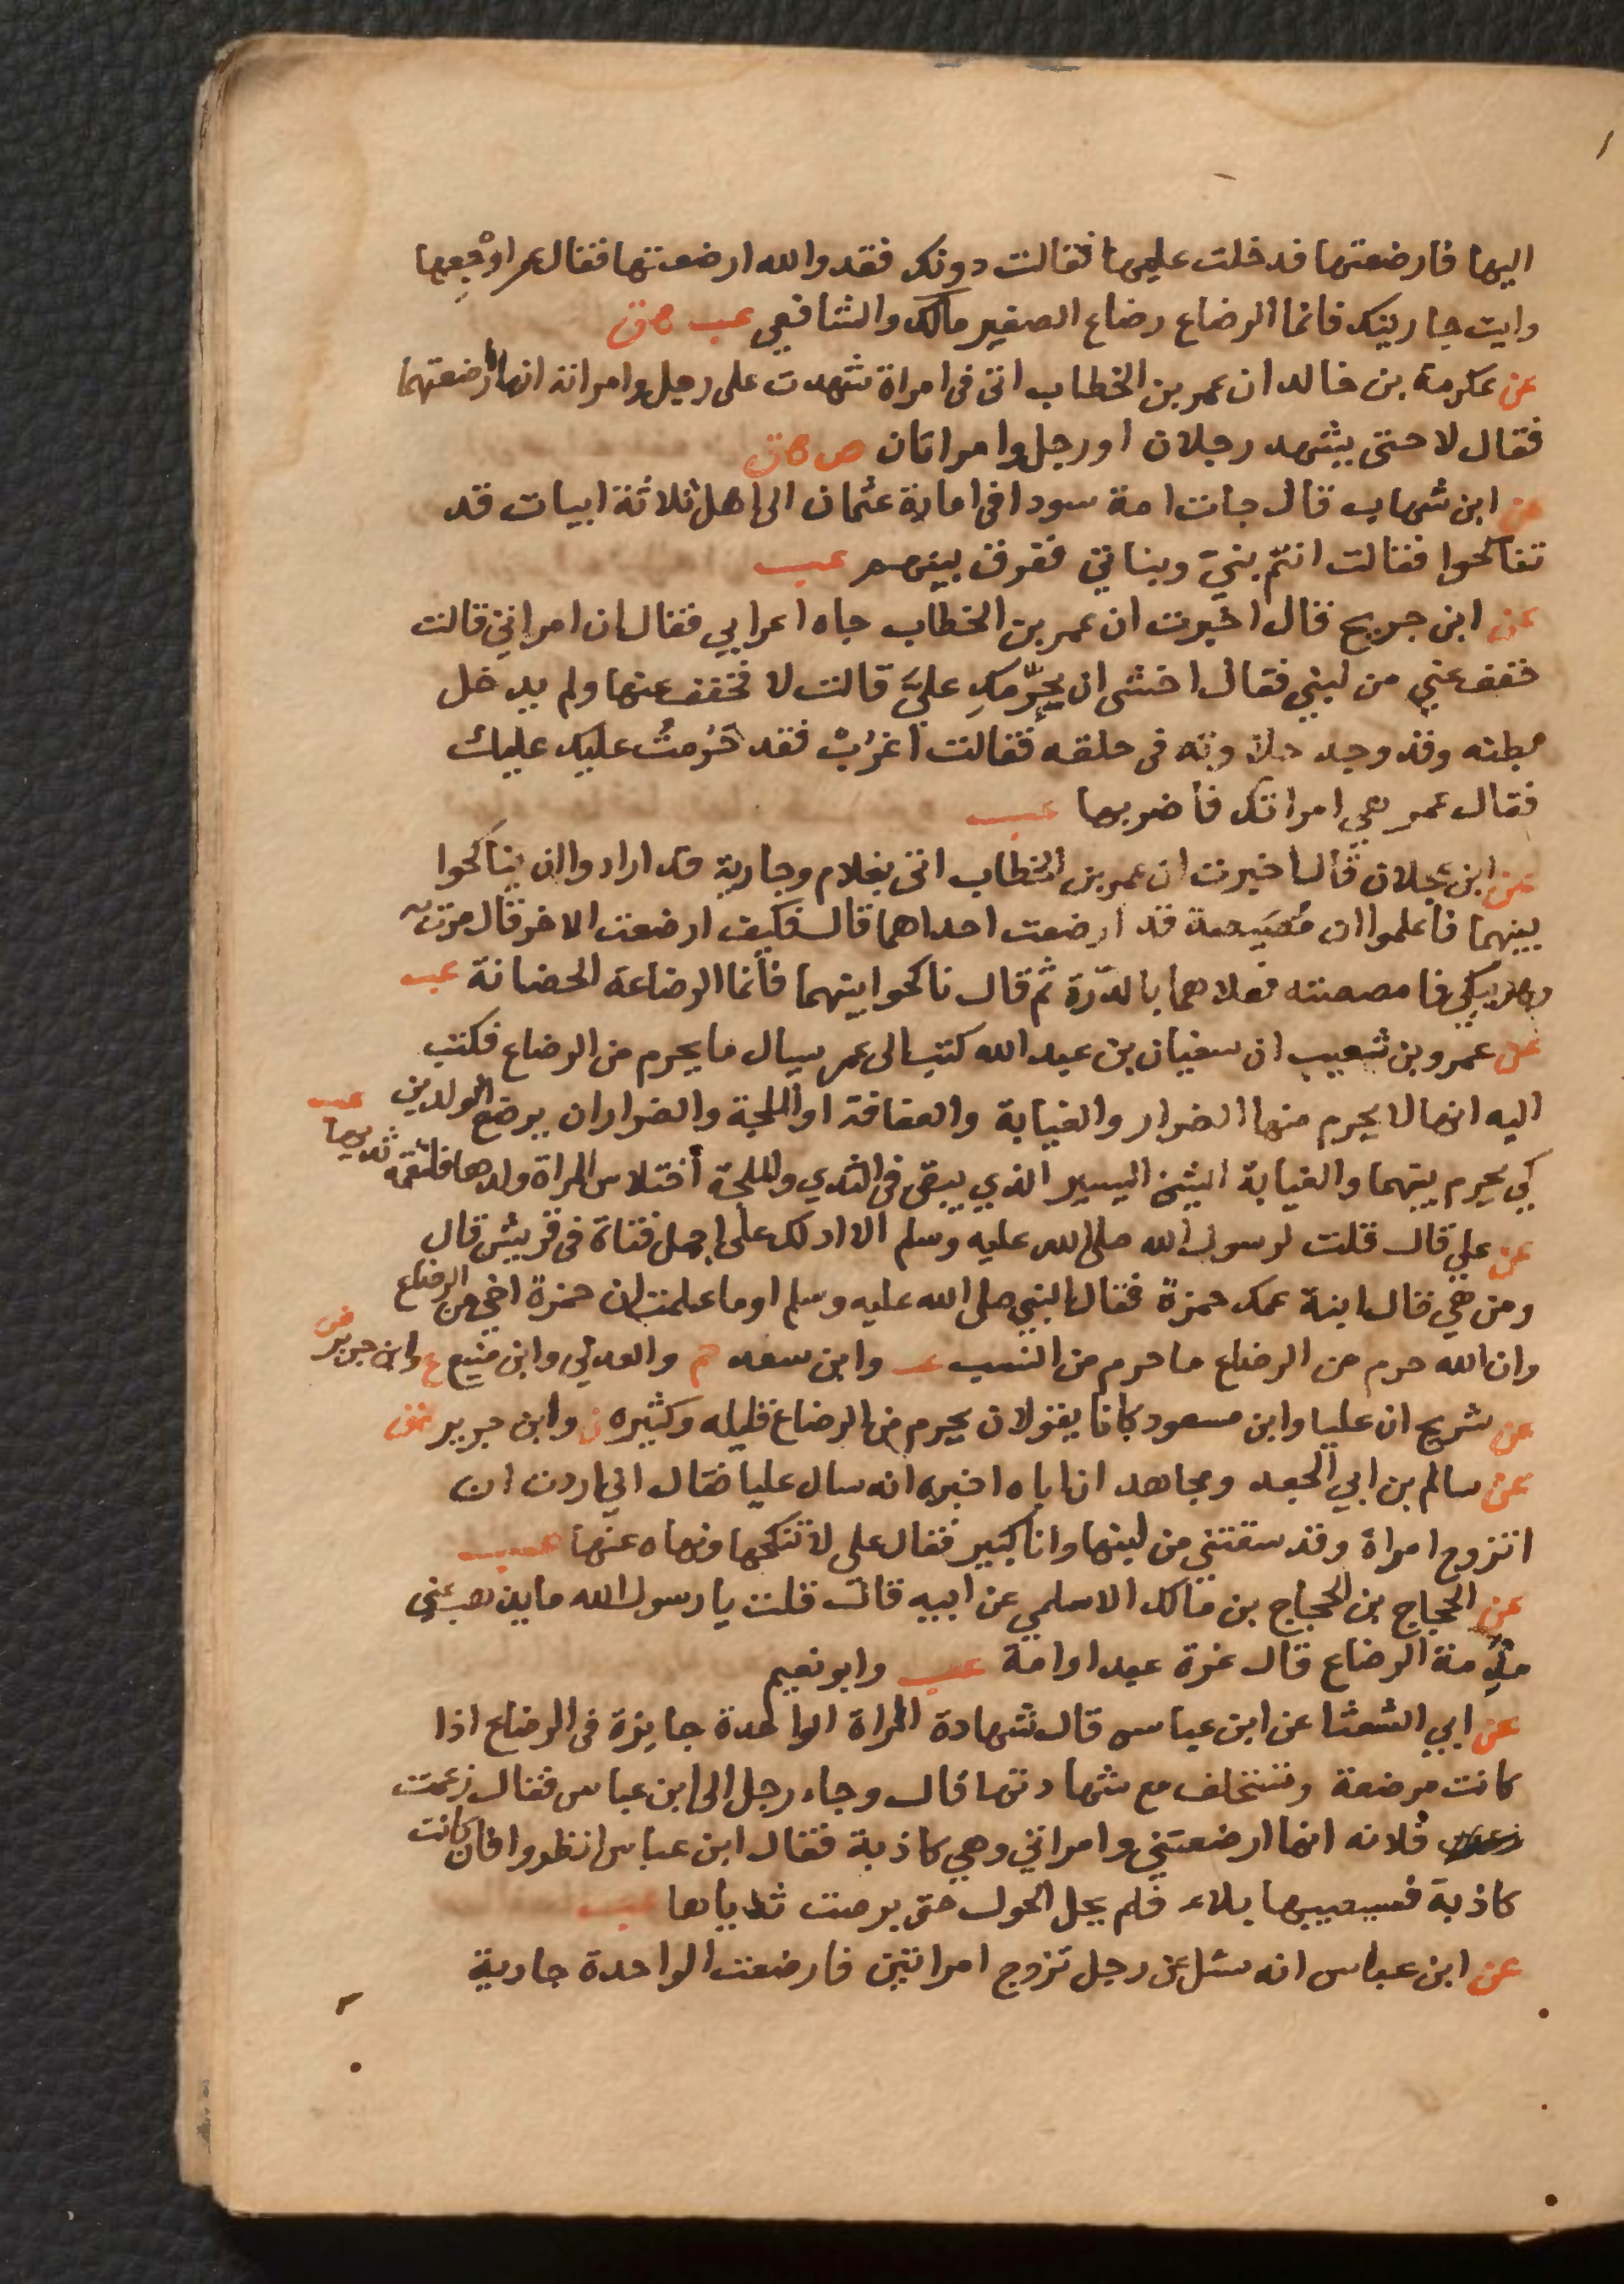 اليها فارضعتها فدخلت عليها فقالت دونك فقد والله ارضعتها فقال عمر اوجعها
وايت جاريتك فانما الرضاع رضاع الصغير مالك والشافعي عب ق
عن عكرمة بن خالد ان عمر بن الخطاب اتى في امراة شهدت على رجل وامراته انها ارضعتهما
فقال لا حتى يشهد رجلان او رجل وامراتان ص ق
عن ابن شهاب قال جات امة سودا في امارة عثمان الى اهل ثلاثة ابيات قد
تناكحوا فقالت انتم بنيّ وبناتي ففرق بينهم عب
عن ابن جريج قال اخبرت ان عمر بن الخطاب جاه اعرابي فقال ان امراتي قالت
خفف عني من لبني فقال اخشى ان يحرّمكِ عليَّ قالت لا فخفف عنها ولم يدخل
بطنه وقد وجد حلاوته في حلقه فقالت اغرُبْ فقد حَرُمتُ عليك عليك
فقال عمر هي امراتك فاضربها عب
عن ابن عجلان قال اخبرت ان عمر بن الخطاب اتى بغلام وجارية قد ارادوا ان يناكحوا
بينهما فاعلموا ان قد ارضعت احداهما قال فكيف ارضعت الاخر قال مرت به
وهو يبكي فامصصته فعلاهما بالدّرة ثم قال ناكحوا بينهما فانما الرضاعة الحضانة عب
عن عمرو بن شعيب ان سفيان بن عبد الله كتب الى عمر سيال ما يحرم من الرضاع فكتب
اليه انها لا يحرم منها الضرار والغيابة والعفافة او الملجة والضرار ان يرضع الولدين عب
كي يحرم بينهما والغيابة الشئ اليسير الذي يبقى في الثدي والملجة اختلاس المراة ولدها فتلقمه ثديها
عن علي قال قلت لرسول الله صلى الله عليه وسلم الا ادلك على اجمل فتاة في قريش قال
ومن هي قال ابنة عمك حمزة فقال النبي صلى الله عليه وسلم اوما علمت ان حمزة اخي من الرضاع
وان الله حرم من الرضاع ما حرم من النسب عب وابن سعد حم والعدني وابن منيع ع وابن جرير ض
عن شريح ان عليا وابن مسعود كانا يقولان يحرم من الرضاع قليله وكثيره ن وابن جرير ق
عن سالم بن ابي الجعد ومجاهد ان اباه اخبره انه سال عليا فقال اني اردت ان
اتزوج امراة وقد سقتني من لبنها وانا كبير فقال علي لا تنكحها ونهاه عنها عب
عن الحجاج بن الحجاج بن مالك الاسلمي عن ابيه قال قلت يا رسول الله ما يذهب عني
مذمة الرضاع قال غرة عبد او امة عب وابو نعيم
عن ابي الشعثا عن ابن عباس قال شهادة المراة الواحدة جايزة في الرضاع اذا
كانت مرضعة وتستحلف مع شهادتها قال وجاء رجل الى ابن عباس فقال زعمت
فلانه انها ارضعتني وامراتي وهي كاذبة فقال ابن عباس انظروا فان كانت
كاذبة فسيصيبها بلاء فلم يحل الحول حتى برصت ثدياها عب
عن ابن عباس انه سئل عن رجل تزوج امراتين فارضعت الواحدة جارية